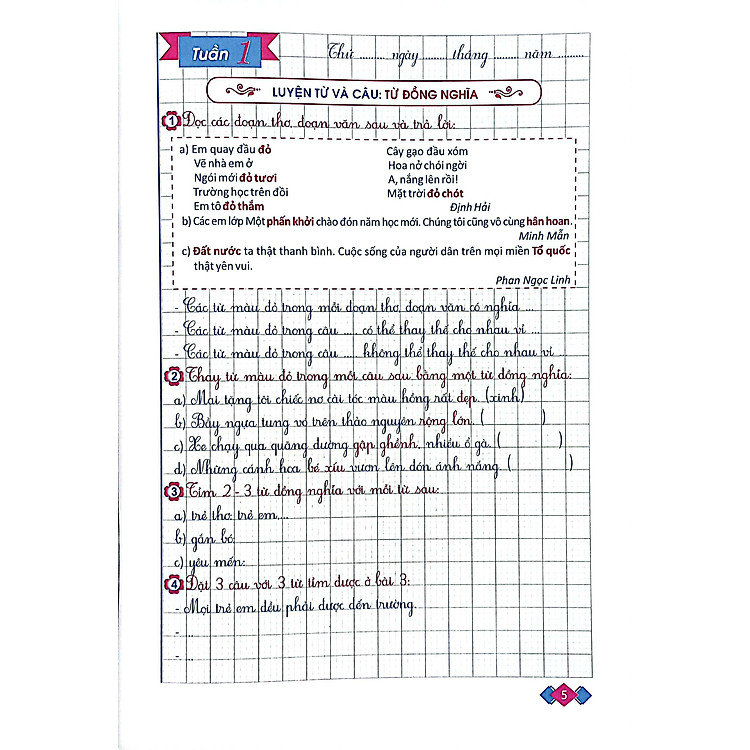 Tuần 1
Thứ ......... ngày ........ tháng ........ năm .........
LUYỆN TỪ VÀ CÂU: TỪ ĐỒNG NGHĨA
1 Đọc các đoạn thơ, đoạn văn sau và trả lời:
a) Em quay đầu đỏ
Vẽ nhà em ở
Ngói mới đỏ tươi
Trường học trên đồi
Em tô đỏ thắm
Cây gạo đầu xóm
Hoa nở chói ngời
A, nắng lên rồi!
Mặt trời đỏ chót
Định Hải
b) Các em lớp Một phấn khởi chào đón năm học mới. Chúng tôi cũng vô cùng hân hoan.
Minh Mẫn
c) Đất nước ta thật thanh bình. Cuộc sống của người dân trên mọi miền Tổ quốc
thật yên vui.
Phan Ngọc Linh
- Các từ màu đỏ trong mỗi đoạn thơ, đoạn văn có nghĩa ...
- Các từ màu đỏ trong câu ..... có thể thay thế cho nhau vì ...
- Các từ màu đỏ trong câu ..... không thể thay thế cho nhau vì ...
2 Thay từ màu đỏ trong mỗi câu sau bằng một từ đồng nghĩa:
a) Mai tặng tôi chiếc nơ cài tóc màu hồng rất đẹp. (xinh)
b) Bầy ngựa tung vó trên thảo nguyên rộng lớn. ( )
c) Xe chạy qua quãng đường gập ghềnh, nhiều ổ gà. ( )
d) Những cánh hoa bé xíu vươn lên đón ánh nắng. ( )
3 Tìm 2 - 3 từ đồng nghĩa với mỗi từ sau:
a) trẻ thơ: trẻ em,...
b) gắn bó:
c) yêu mến:
4 Đặt 3 câu với 3 từ tìm được ở bài 3:
- Mọi trẻ em đều phải được đến trường.
- ...
- ...
5